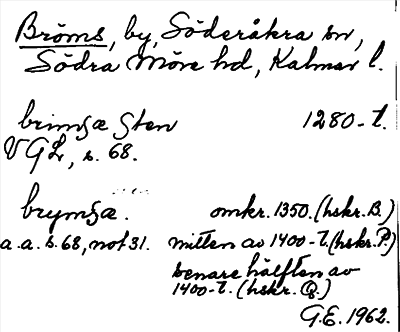 Bröms, by, Söderåkra sn,
Södra Möre hd, Kalmar l.
brimsæ Sten 1280-t.
VGL, s. 68.
brymsæ. omkr. 1350. (hskr. B.)
a.a. s. 68, not 31. mitten av 1400-t. (hskr. P.)
senare hälften av
1400-t. (hskr. Q.)
G.E. 1962.